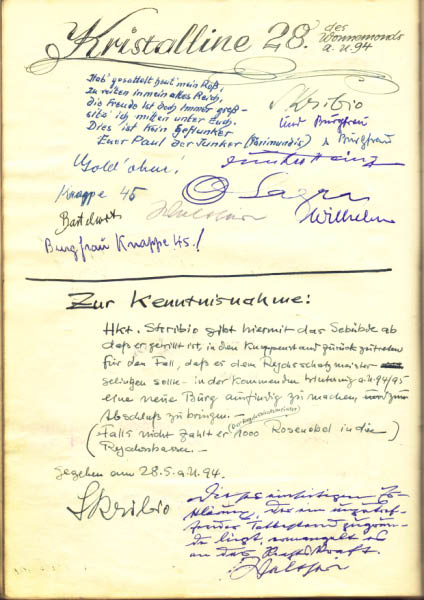 Kristalline 28. des
Wonnemonds
a. U. 94
Hab' gesattelt heut' mein Roß,
zu reiten in mein altes Reich,
die Freude ist doch immer groß –
sitz' ich mitten unter Euch.
Dies ist kein Geflunker
Euer Paul der Junker (Parimundis) & Burgfrau
Skribio
und Burgfrau
Junker Heinz
Gold' ohne!
Knappe 45
Sagen
Wilhelm
Burgfrau Knappe 45.!
Zur Kenntnisnahme:
Hkt. Skribio gibt hiermit das Gelübde ab
daß er gewillt ist, in den Knappenstand zurückzutreten
für den Fall, daß es dem Reychsschatzmeister
gelingen sollte in der kommenden Winterung a.U. 94/95
eine neue Burg ausfindig zu machen, und zum
Abschluß zu bringen. –
(Falls nicht zahlt er 1000 Rosenobel in die
Reychskasse. – )
Gegeben am 28.5. a.U. 94.
Skribio
Dieser einseitigen Er-
klärung, der ein
Tatbestand zugrun-
de liegt, ermangelt es
an der Rechtskraft.